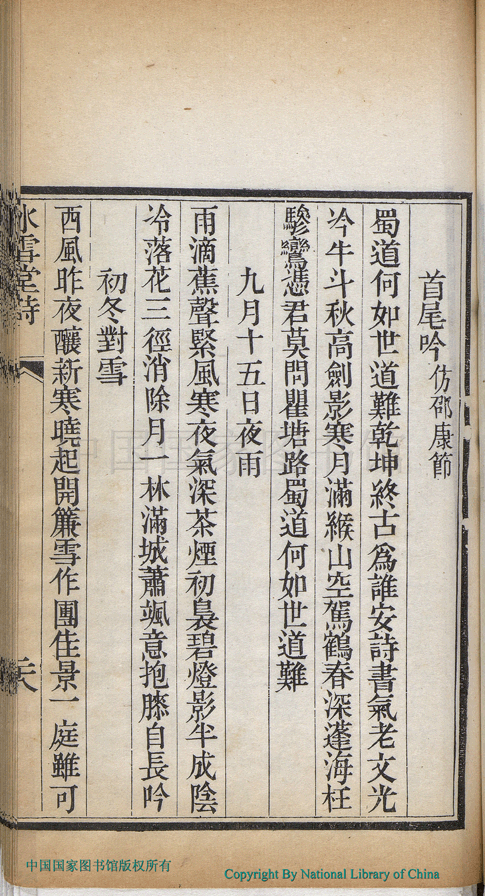 首尾吟仿邵康節
蜀道何如世道難乾坤終古為誰安詩書氣老文光
冷牛斗秋高劍影寒月滿緱山空駕鶴春深蓬海枉
驂鸞憑君莫問瞿塘路蜀道何如世道難
九月十五日夜雨
雨滴蕉聲緊風寒夜氣深茶煙初裊碧燈影半成陰
冷落花三徑消除月一林滿城蕭颯意抱膝自長吟
初冬對雪
西風昨夜釀新寒曉起開簾雪作團佳景一庭雖可
冰雪堂詩
中国国家图书馆版权所有
Copyright By National Library of China